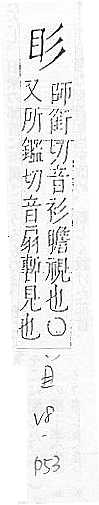 䀐
師銜切音衫瞻視也〇
又所鑑切音釤暫見也
目
V8-
p53